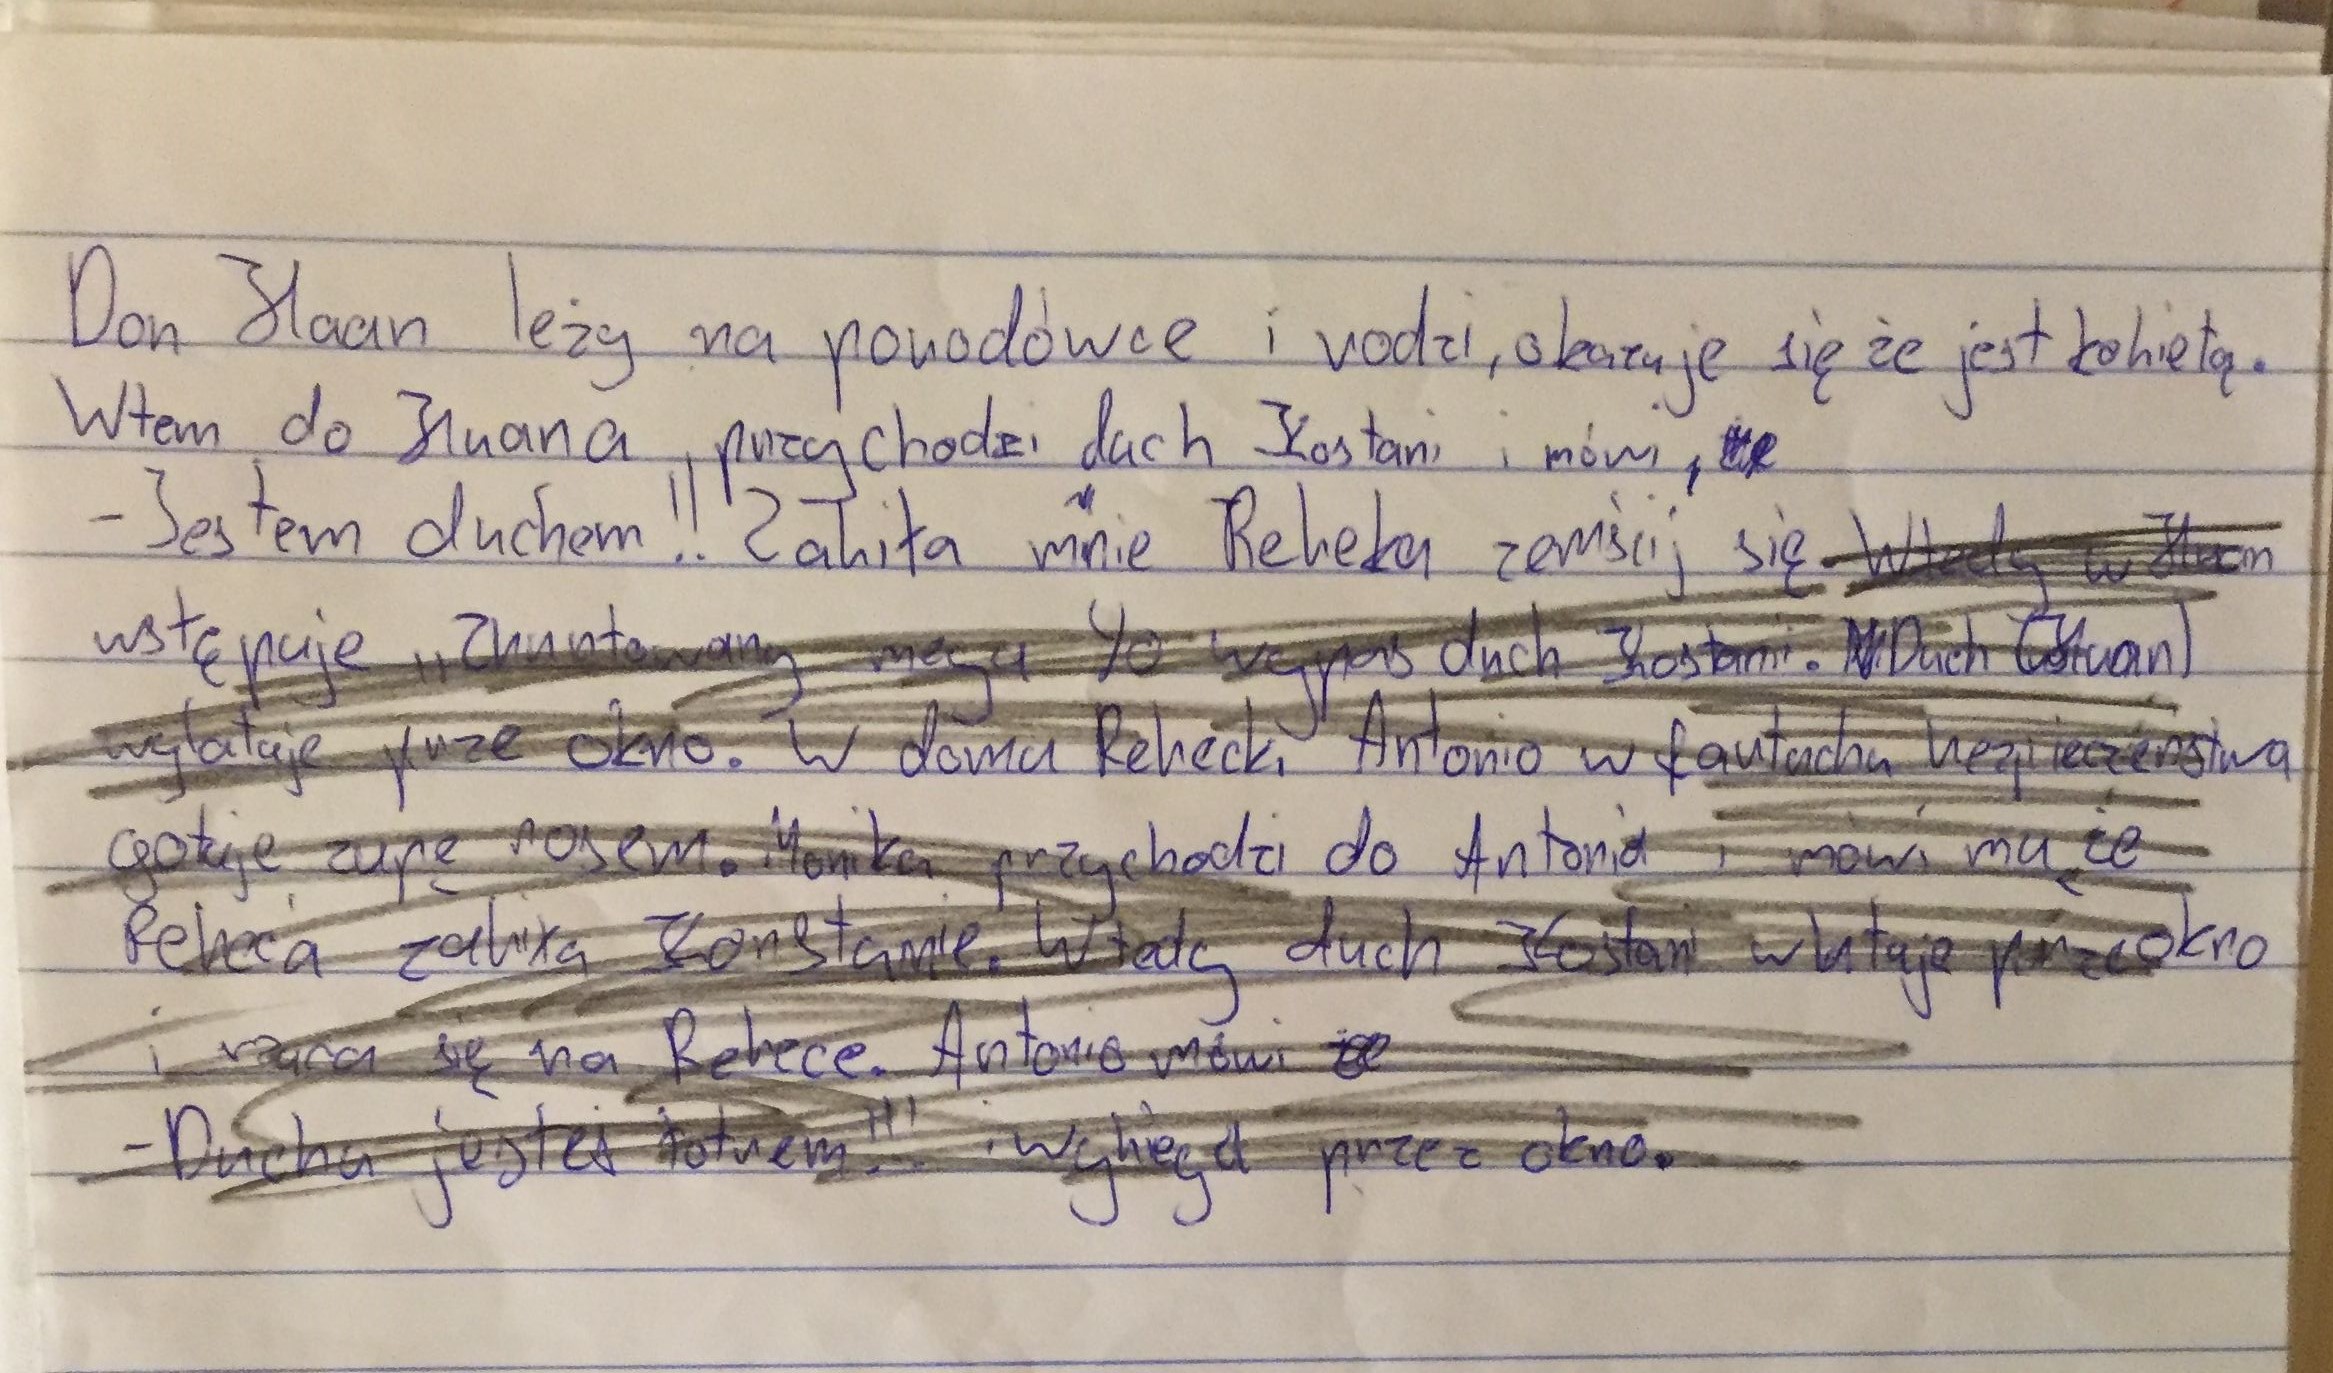 Don Huan leży na porodówce i rodzi, okazuje się że jest kobietą.
Wtem do Huana przychodzi duch Kostani i mówi,
- Jestem duchem!! Zabiła mnie Rebeka zemścij się. Wtedy w Huan
wstępuje „Zbuntowany mega yo wypas duch Kostani. Duch (Huan)
wylatuje prze okno. W domu Rebecki Antonio w fartuchu bezpieczeństwa
gotuje zupę nosem. Monika przychodzi do Antonia i mówi mu że
Rebeca zabiła Konstanie. Wtedy duch Kostani wlatuje prze okno
i rzuca się na Rebece. Antonio mówi że
- Duchu jesteś łotrem!!! i wybiega przez okno.